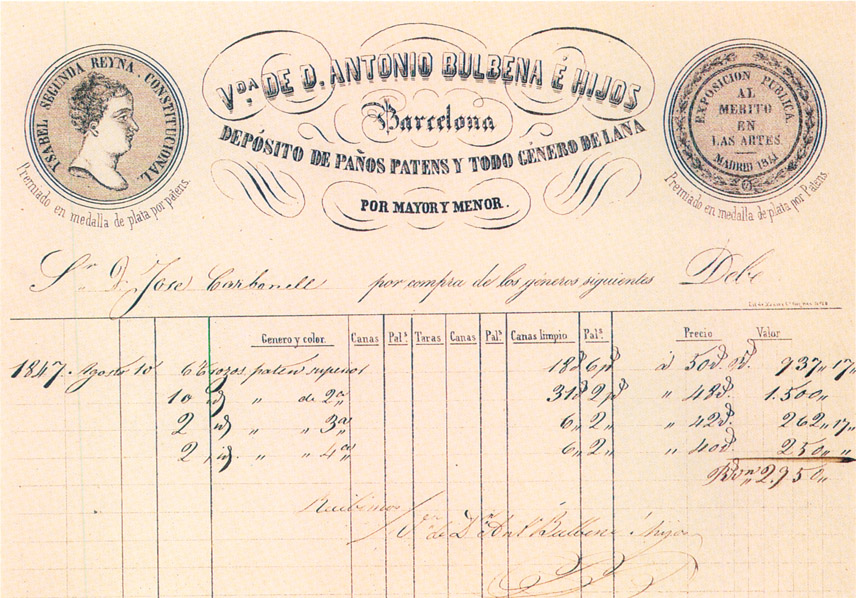 Vda. DE D. ANTONIO BULBENA É HIJOS
Barcelona
DEPÓSITO DE PAÑOS PATENS Y TODO GÉNERO DE LANA
POR MAYOR Y MENOR.
ISABEL SEGUNDA REYNA CONSTITUCIONAL.
Premiado en medalla de plata por patens.
EXPOSICION PUBLICA.
AL
MERITO
EN
LAS ARTES.
MADRID 1841
Premiado en medalla de plata por Patens.
Sr. D. Jose Carbonell por compra de los géneros siguientes Debe
Genero y color. Canas Pals. Taras Canas Pals. Canas limpio Pals. Precio Valor
1847. Agosto 10 6 trozos paten superior 18 6 á 50 937 17
10 id " de 2a 31 2 " 48 1.500
2 id " " 3a 6 2 " 42 262 17
2 id " " 4a 6 2 " 40 250 "
2.950
Recibimos
Va de D. Ant Bulbena é hijos